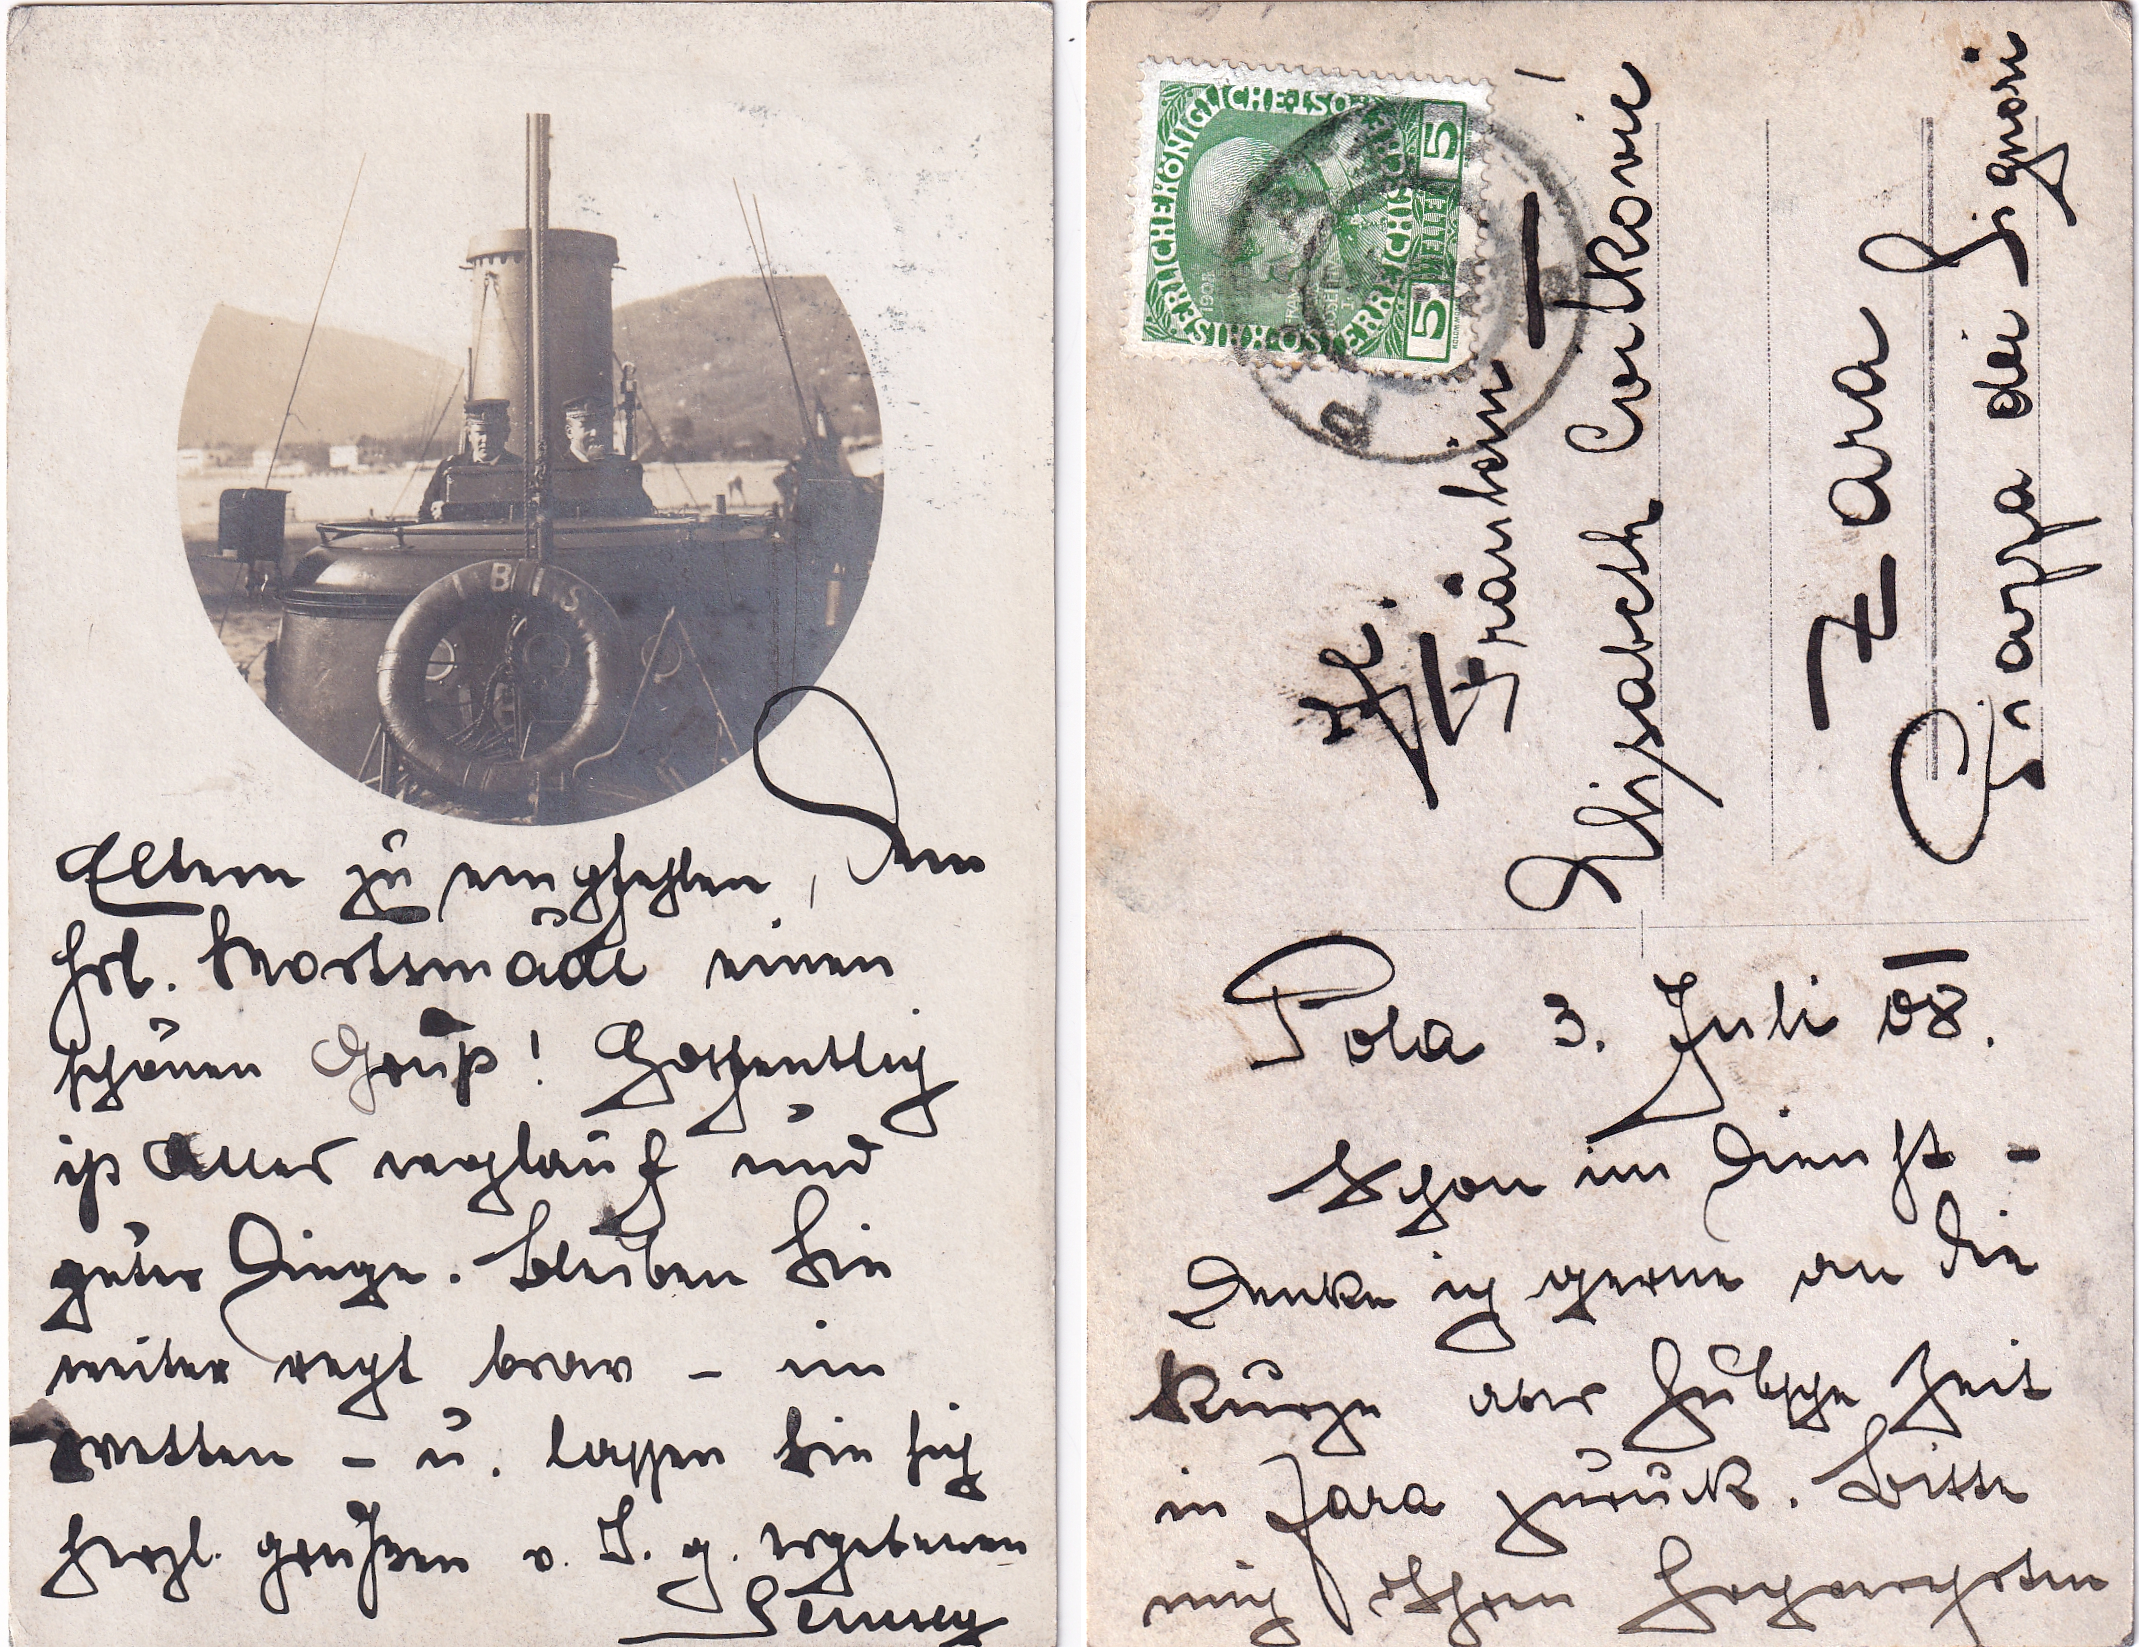 IBIS
Eltern zu empfehlen, dem
Frl. einen
schönen Gruß! Hoffentlich
ist alles wohlauf und
guter Dinge. Bleiben Sie
weiter recht brav – im
wetten – u. lassen Sie sich
herzl. grüßen v. I. g. ergebenen
KAISERLICHE KÖNIGLICHE ÖSTERREICHISCHE
5 HELLER 5
1908
Fräulein
Elisabeth Cvitkovic
Zara
Piazza dei Signori
Pola 3. Juli 08.
Schon im Dienst –
denke ich gerne an die
kurze aber hübsche Zeit
in Zara zurück. Bitte
mich